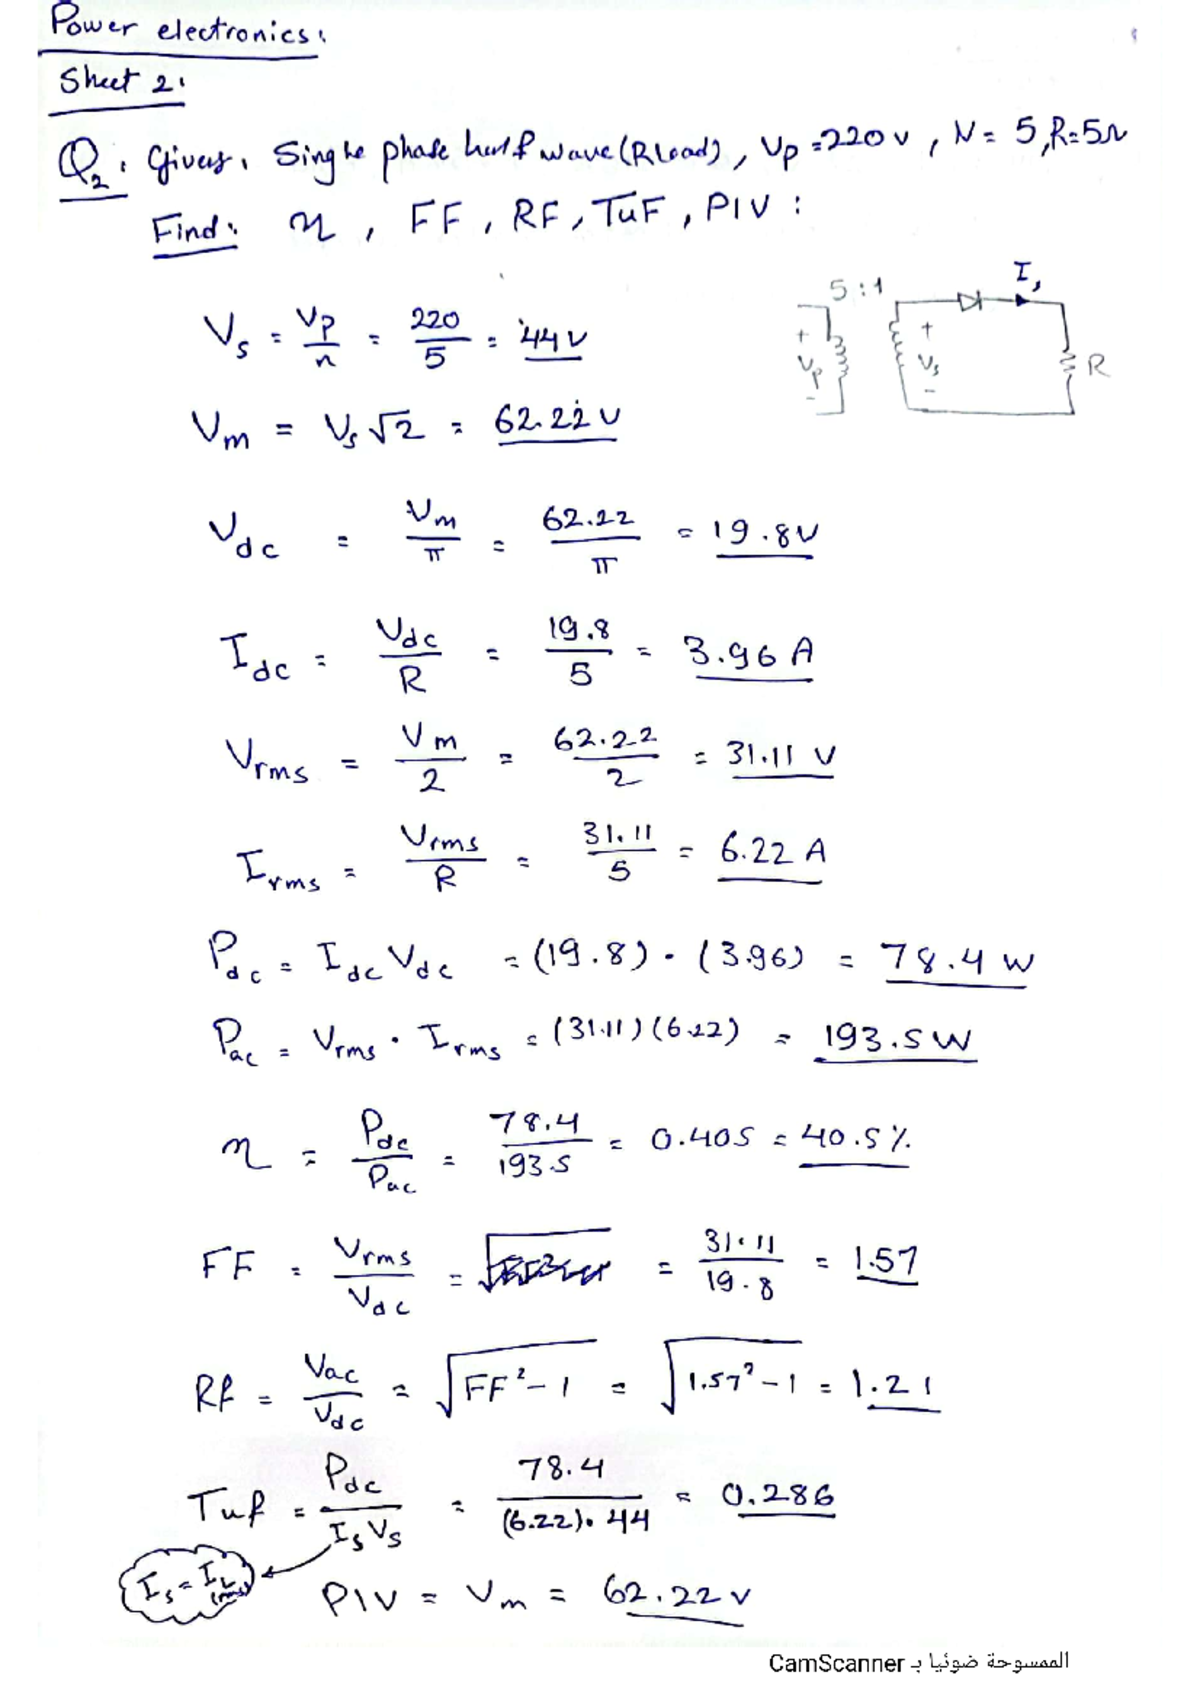 Power electronics:
Sheet 2:
Q2: Given: Single phase half wave (R load), Vp = 220 v, N = 5, R = 5Ω
Find: η, FF, RF, TUF, PIV :
5 : 1
Is
+ Vp -
+ Vs -
R
Vs = Vp/n = 220/5 = 44 v
Vm = Vs √2 = 62.22 v
Vdc = Vm/π = 62.22/π = 19.8 v
Idc = Vdc/R = 19.8/5 = 3.96 A
Vrms = Vm/2 = 62.22/2 = 31.11 v
Irms = Vrms/R = 31.11/5 = 6.22 A
Pdc = Idc Vdc = (19.8) . (3.96) = 78.4 w
Pac = Vrms . Irms = (31.11) (6.22) = 193.5 W
η = Pdc/Pac = 78.4/193.5 = 0.405 = 40.5 %
FF = Vrms/Vdc = = 31.11/19.8 = 1.57
Rf = Vac/Vdc = √(FF² - 1) = √(1.57² - 1) = 1.21
Tuf = Pdc/(Is Vs) = 78.4/((6.22) . 44) = 0.286
Is = IL (rms)
PIV = Vm = 62.22 v
الممسوحة ضوئيا بـ CamScanner